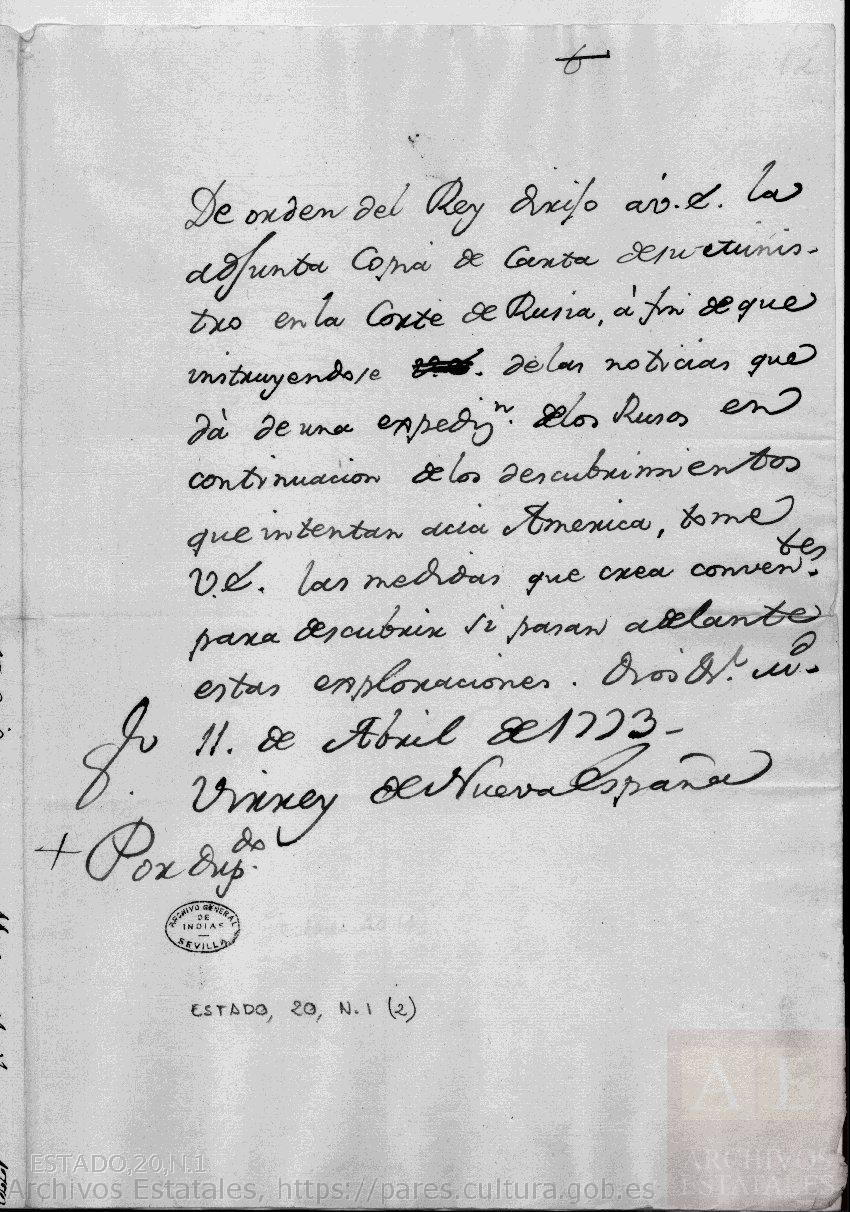 De orden del Rey dirijo á V.E. la
adjunta Copia de Carta de su Minis-
tro en la Corte de Rusia, á fin de que
instruyendose de las noticias que
dà de una expediz.n de los Rusos en
continuacion de los descubrimientos
que intentan acia America, tome
V.E. las medidas que crea conven.tes
para descubrir si pasan adelante
estas exploraciones. Dios gu.
11. de Abril de 1773-
Virrey de Nueva España
+ Por dup.do
ARCHIVO GENERAL
DE
INDIAS
SEVILLA
ESTADO, 20, N.1 (2)
A E
ARCHIVOS
ESTATALES
ESTADO,20,N.1
Archivos Estatales, https://pares.cultura.gob.es